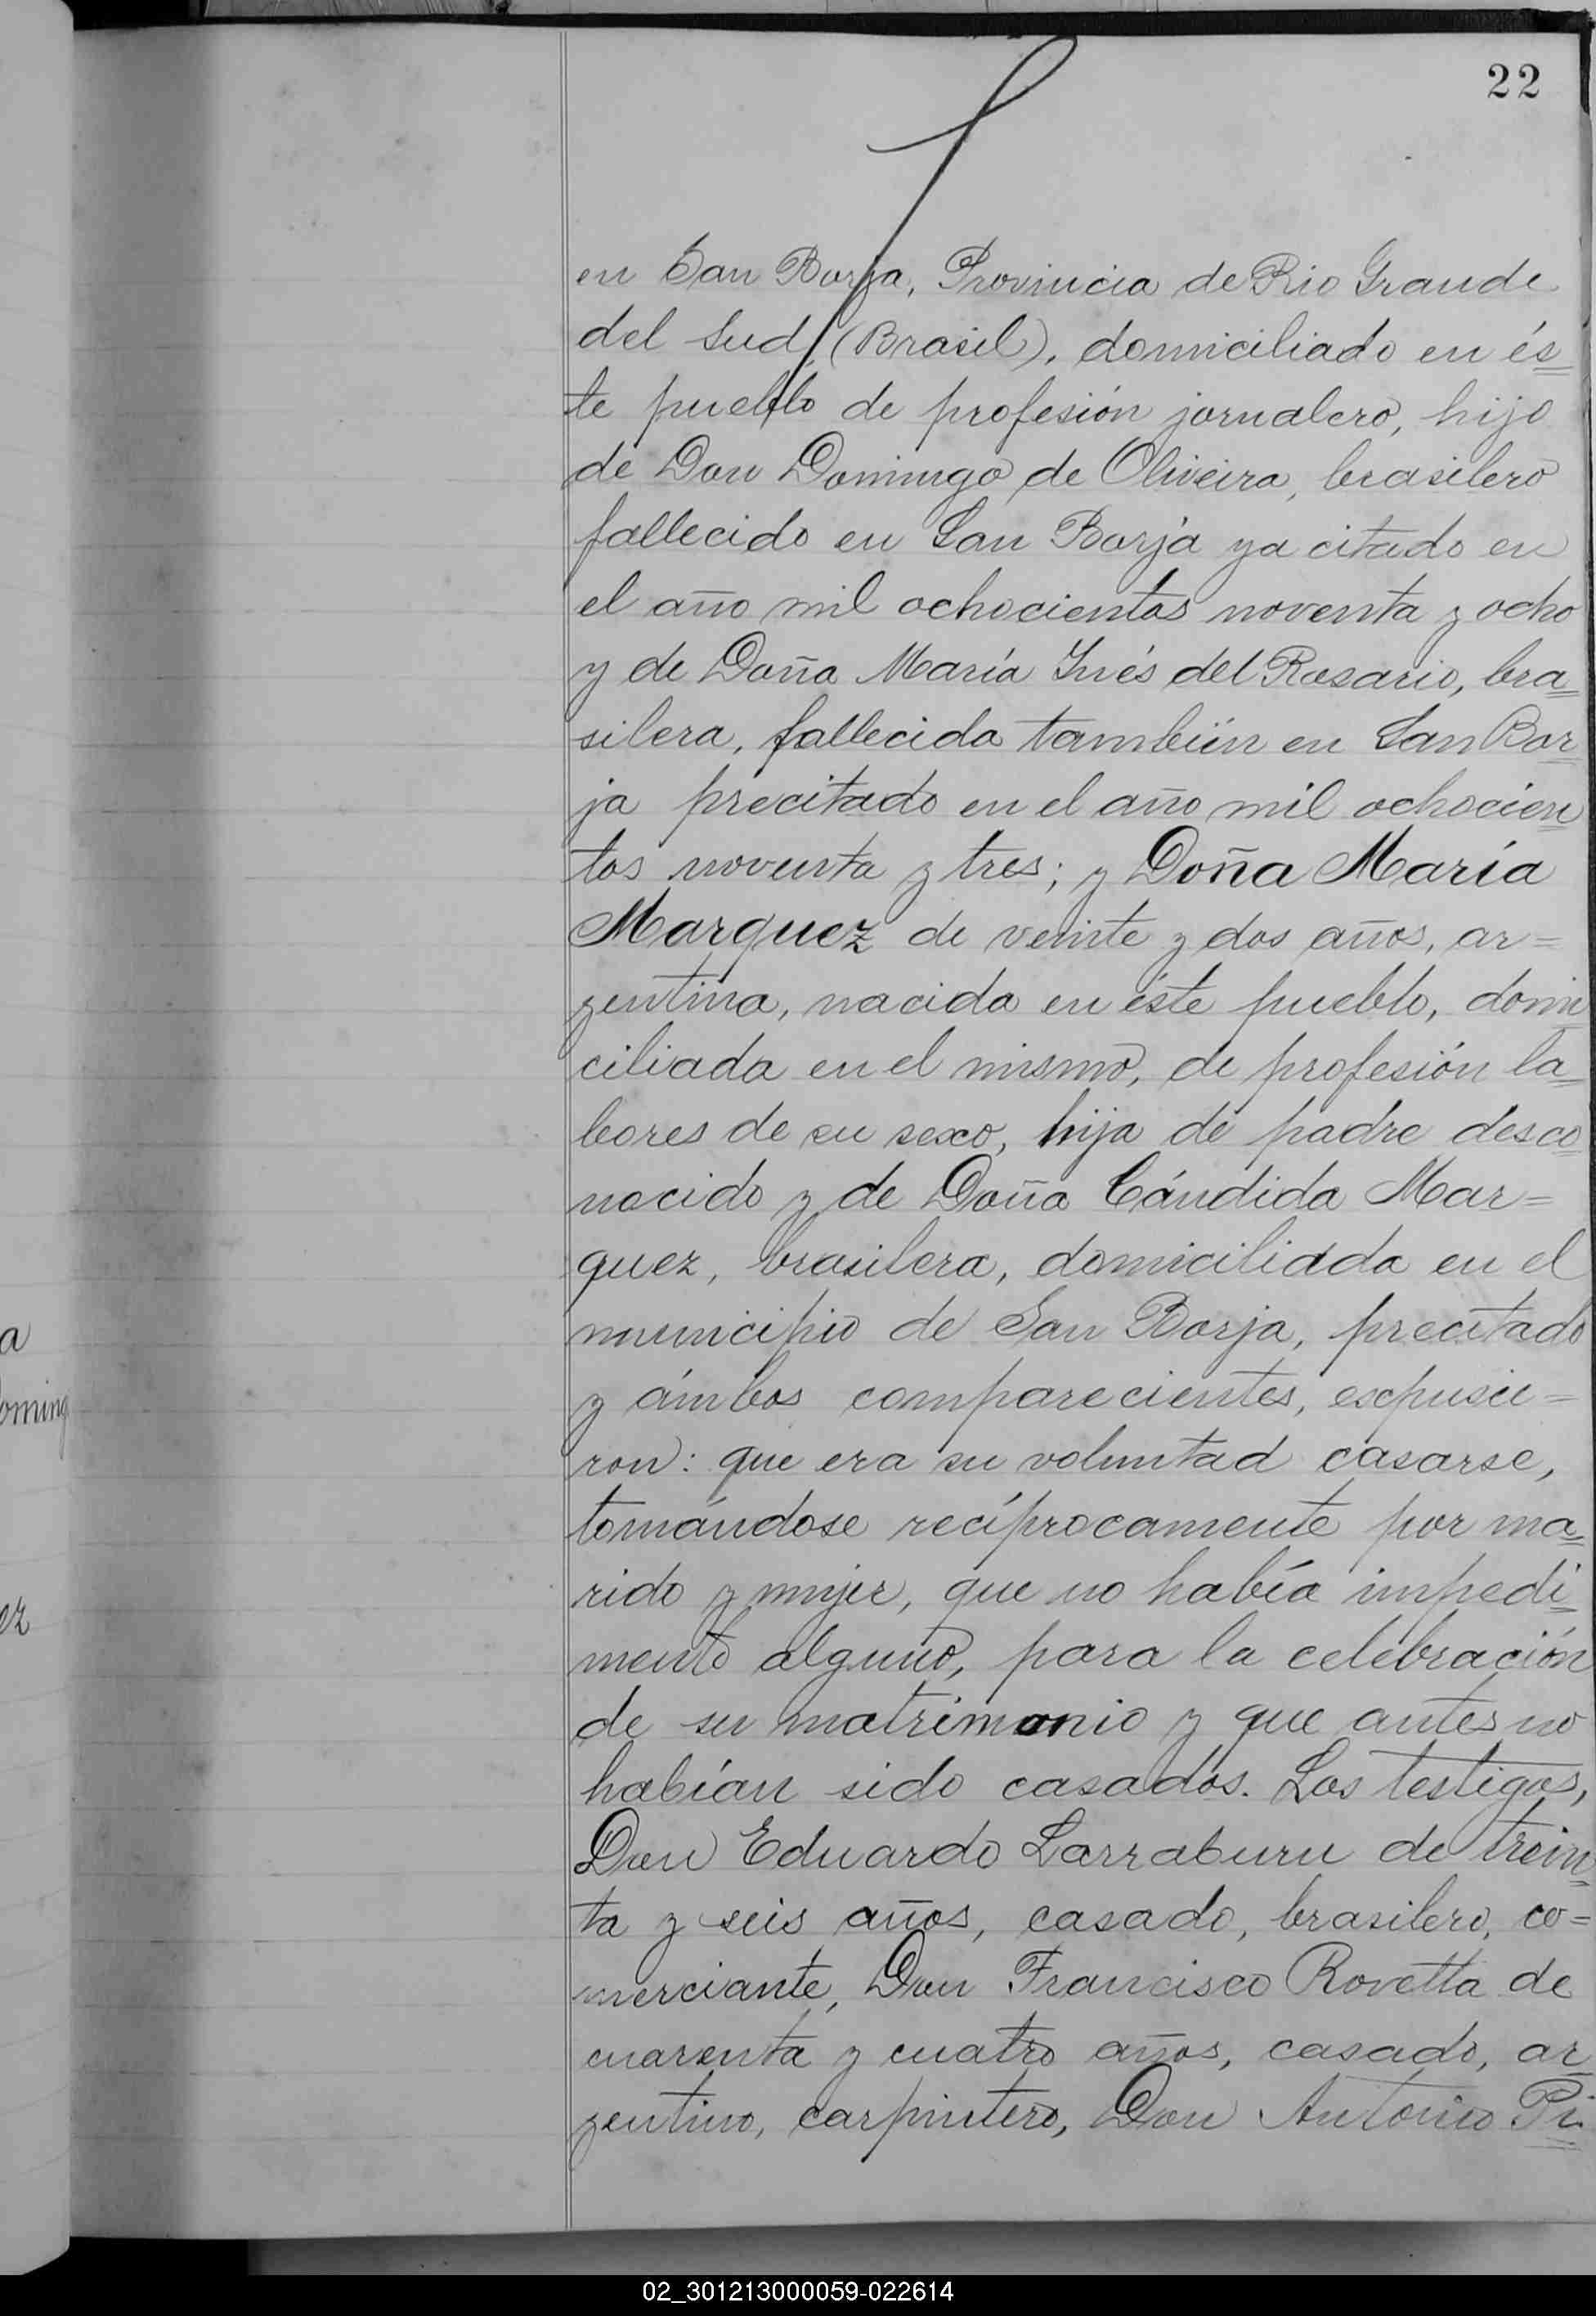 22
en San Borja, Provincia de Rio Grande
del Sud, (Brasil), domiciliado en és=
te pueblo de profesión jornalero, hijo
de Don Domingo de Oliveira, brasilero
fallecido en San Borja ya citado en
el año mil ochocientos noventa y ocho
y de Doña María Inés del Rosario, bra=
silera, fallecida también en San Bor=
ja precitado en el año mil ochocien=
tos noventa y tres; y Doña María
Marquez de veinte y dos años, ar=
gentina, nacida en éste pueblo, domi=
ciliada en el mismo, de profesión la=
bores de su sexo, hija de padre desco=
nocido y de Doña Cándida Mar=
quez, brasilera, domiciliada en el
municipio de San Borja, precitado
y ámbos comparecientes, expusie=
ron: que era su voluntad casarse,
tomándose recíprocamente por ma=
rido y mujer, que no había impedi=
mento alguno, para la celebración
de su matrimonio y que antes no
habían sido casados. Los testigos,
Don Eduardo Larraburu de trein=
ta y seis años, casado, brasilero, co=
merciante, Don Francisco Rovetta de
cuarenta y cuatro años, casado, ar=
gentino, carpintero, Don Antonio Pi=
a
oming
ez
02_301213000059-022614